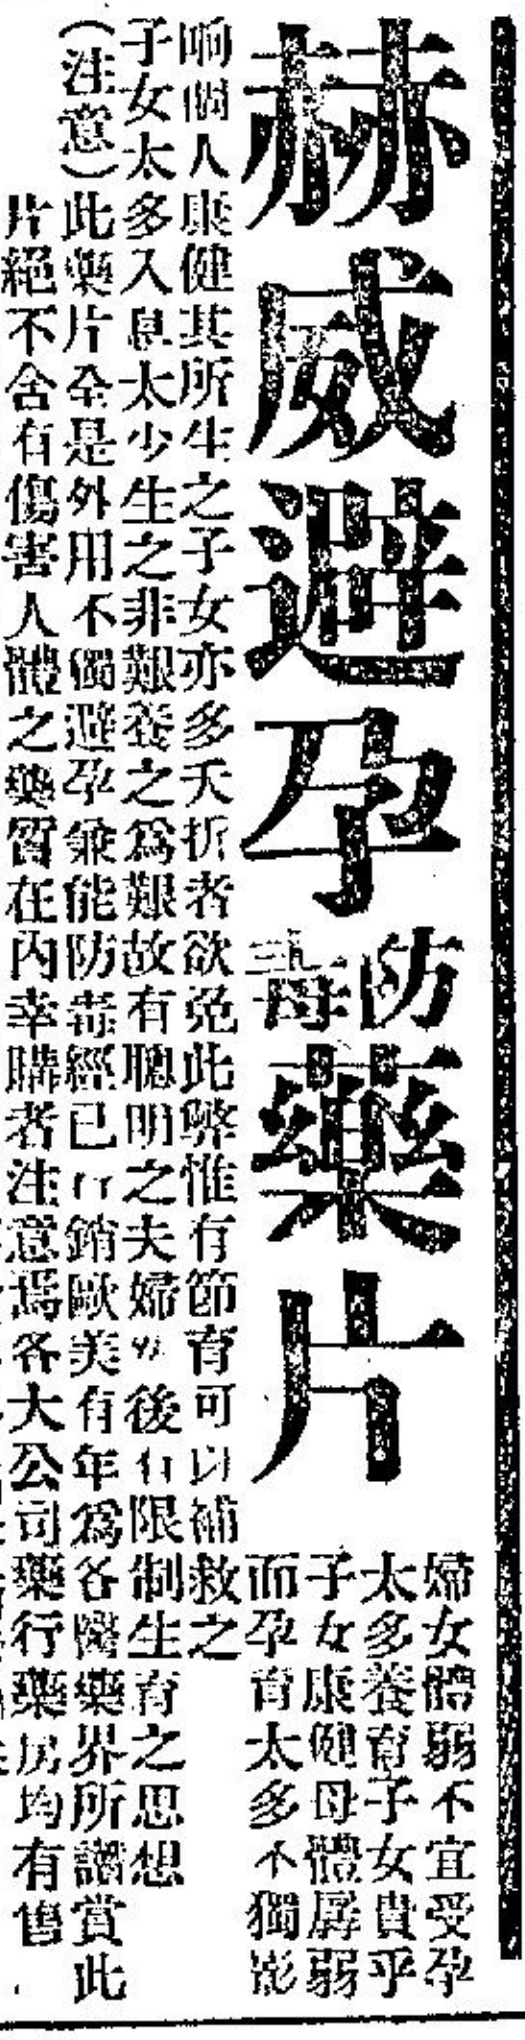 赫威避孕防毒藥片
婦女體弱不宜受孕
太多養育子女貴乎
子女康健母體孱弱
而孕育太多不獨影
响個人康健其所生之子女亦多夭折者欲免此弊惟有節育可以補救之
子女太多入息太少生之非艱養之為艱故有聰明之夫婦後有限制生育之思想
(注意)此藥片全是外用不獨避孕兼能防毒經已行銷歐美有年為各醫藥界所讚賞此
片絕不含有傷害人體之藥質在內幸購者注意焉各大公司藥行藥房均有售